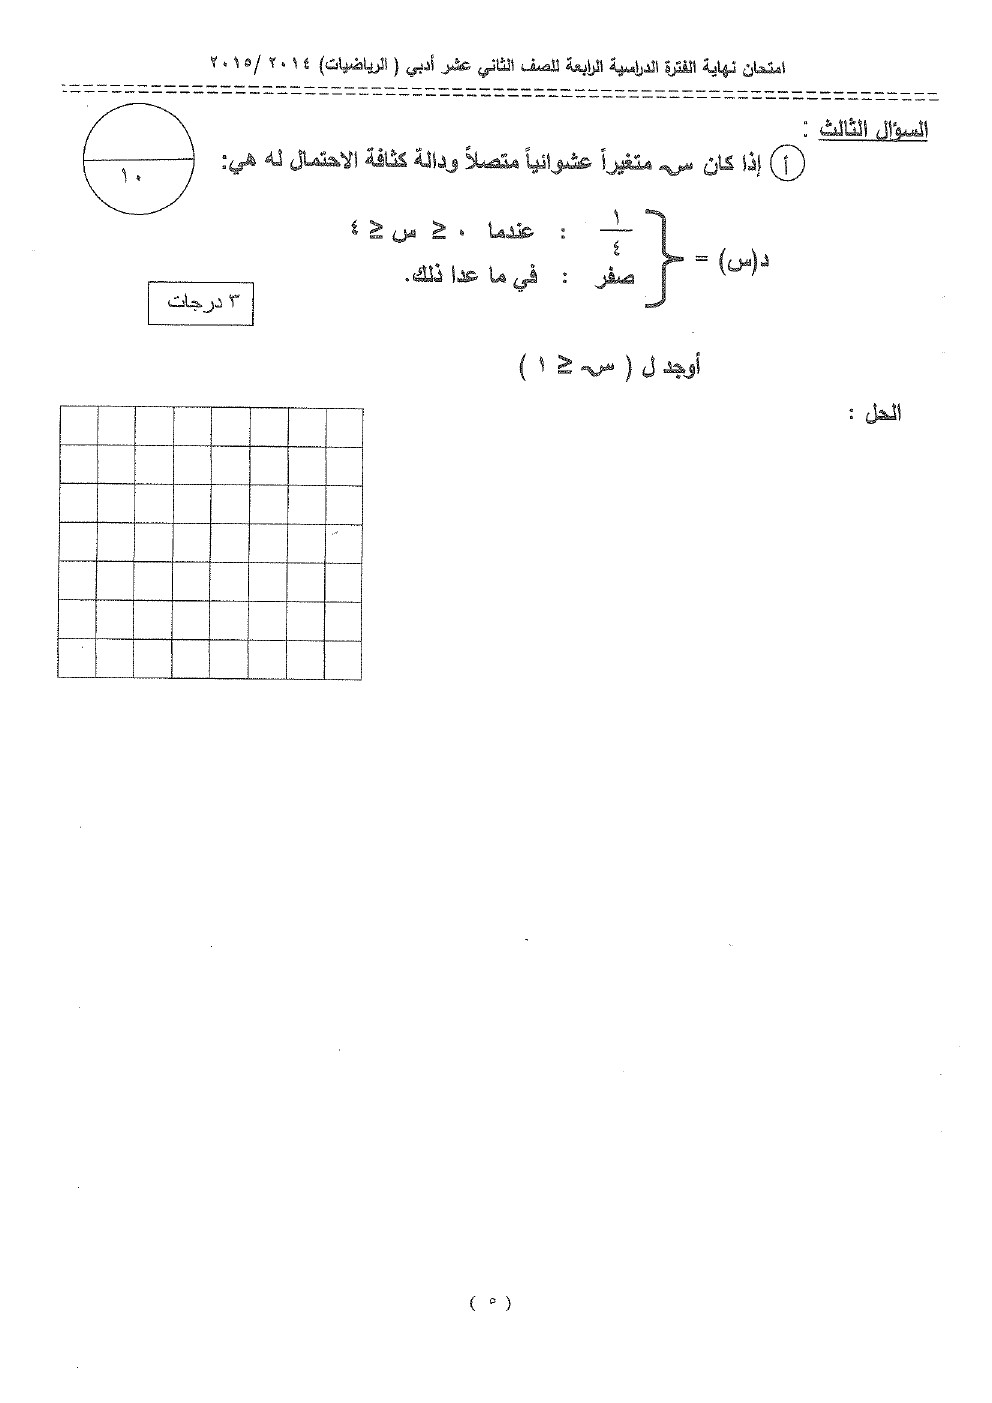 امتحان نهاية الفترة الدراسية الرابعة للصف الثاني عشر أدبي ( الرياضيات) ٢٠١٤ /٢٠١٥
السؤال الثالث :
١٠
أ إذا كان س متغيراً عشوائياً متصلاً ودالة كثافة الاحتمال له هي:
د(س) = { ١/٤ : عندما ٠ ≤ س ≤ ٤
صفر : في ما عدا ذلك.
٣ درجات
أوجد ل ( س ≤ ١ )
الحل :
( ٥ )